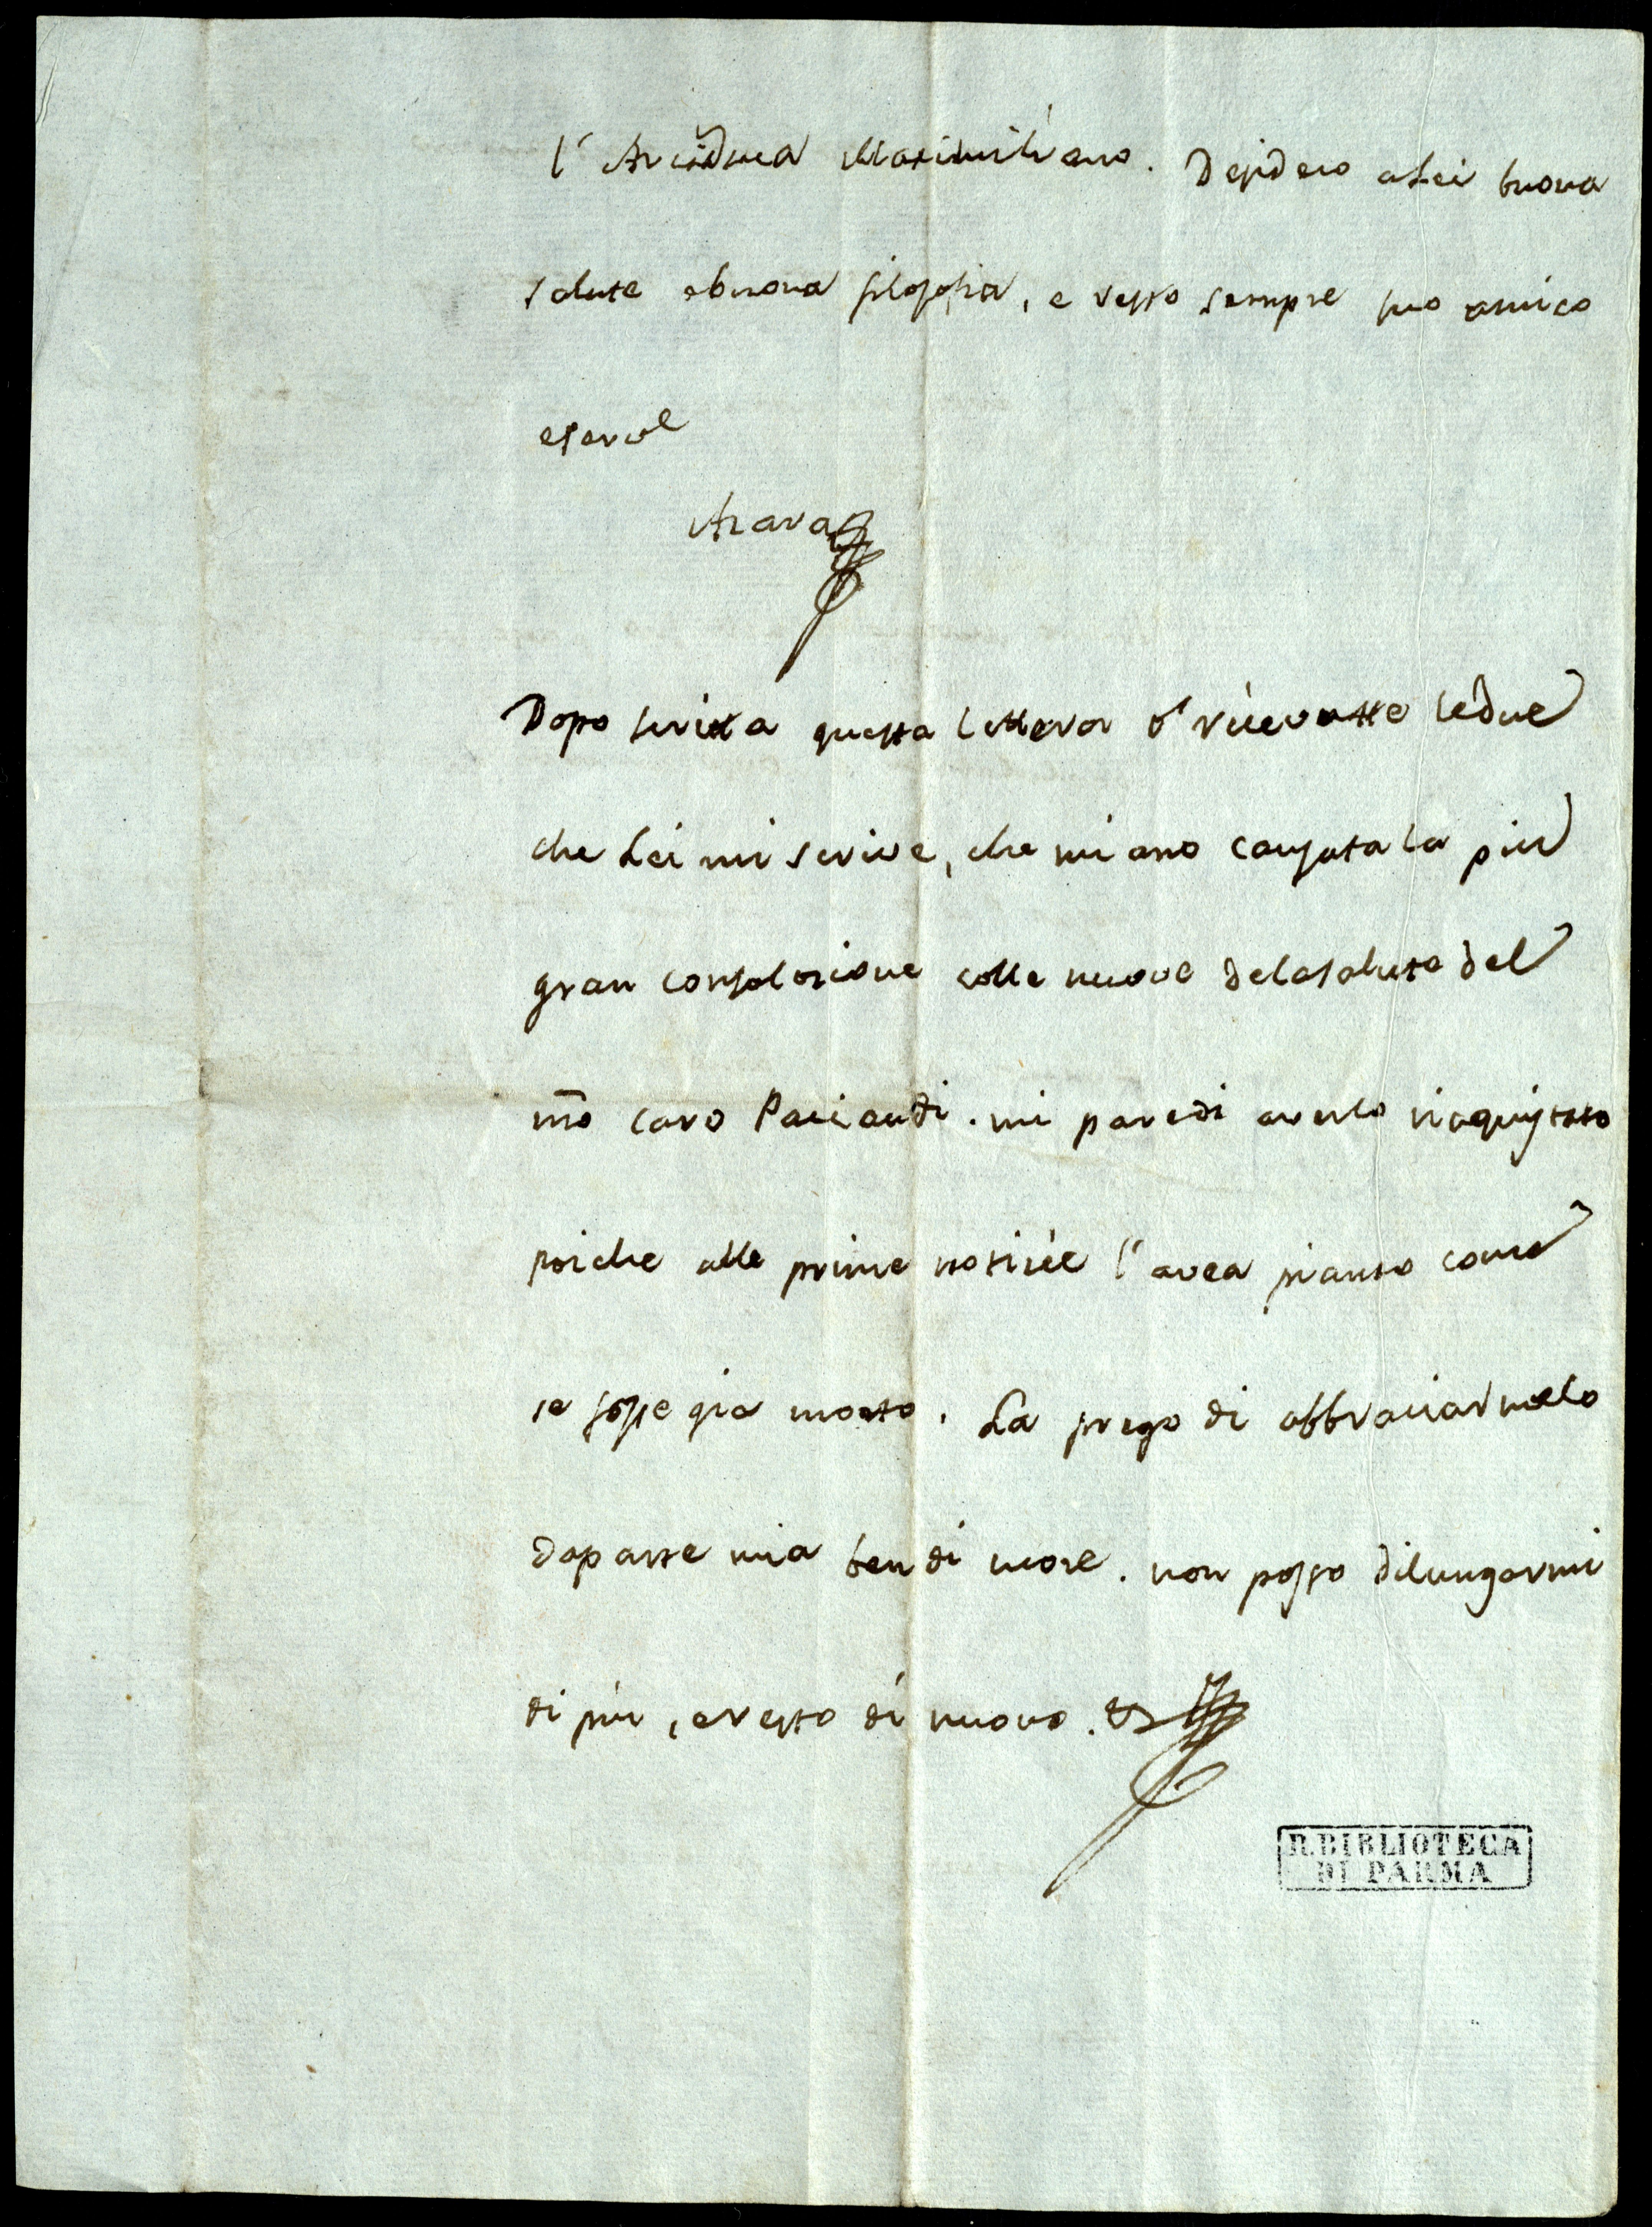 l'Arciduca Maximiliano. Desidero a Lei buona
salute e buona filosofia, e resto sempre suo amico
e servie
Azara
Dopo scritta questa lettera ó ricevutte le due
che Lei mi scrive, che mi ano causata la più
gran consolazione colle nuove dela salute del
nro caro Paciaudi. mi pare di averlo riaquistato
poiche alle prime notizie l'avea pianto come
se fosse gia morto. La prego di abbraciarmelo
da parte mia ben di cuore. non posso dilungarmi
di più, e resto di nuovo.
R. BIBLIOTECA
DI PARMA